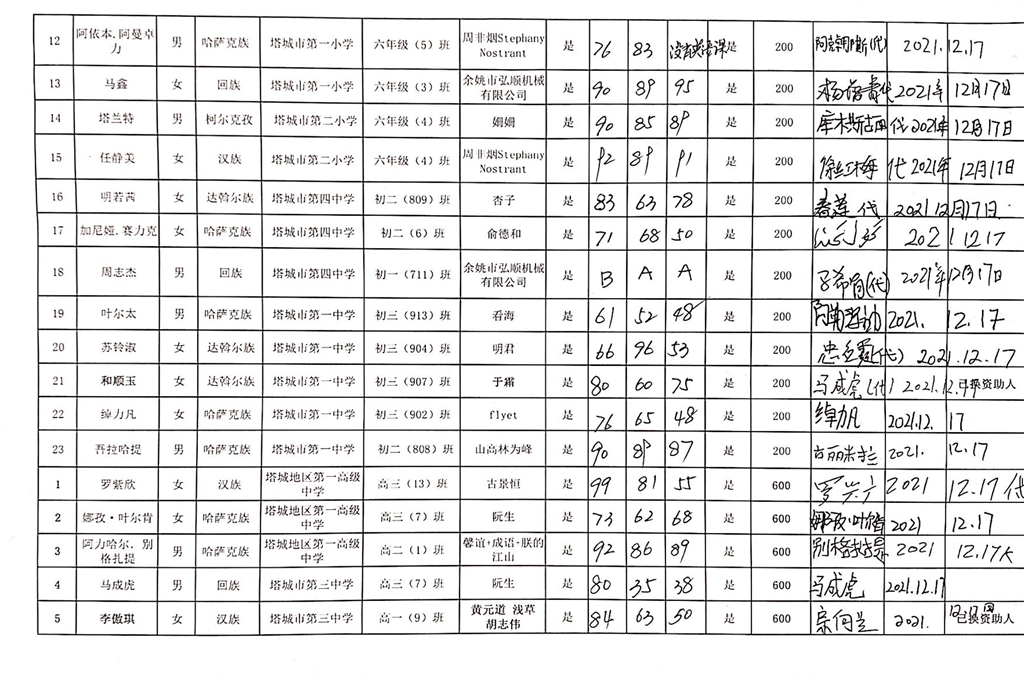 12 阿依本.阿曼卓力 男 哈萨克族 塔城市第一小学 六年级（5）班 周非烟Stephany Nostrant 是 76 83 没有英语课 是 200 2021.12.17
13 马鑫 女 回族 塔城市第一小学 六年级（3）班 余姚市弘顺机械有限公司 是 90 89 95 是 200 代 2021年 12月17日
14 塔兰特 男 柯尔克孜 塔城市第二小学 六年级（4）班 姗姗 是 90 85 89 是 200 代 2021年 12月17日
15 任静美 女 汉族 塔城市第二小学 六年级（4）班 周非烟Stephany Nostrant 是 92 89 91 是 200 徐红梅 代 2021年 12月17日
16 明若茜 女 达斡尔族 塔城市第四中学 初二（809）班 杏子 是 83 63 78 是 200 春莲 代 2021 12月17日.
17 加尼娅.赛力克 女 哈萨克族 塔城市第四中学 初二（6）班 俞德和 是 71 68 50 是 200 2021 12 17
18 周志杰 男 回族 塔城市第四中学 初一（711）班 余姚市弘顺机械有限公司 是 B A A 是 200 (代) 2021年 12月17日
19 叶尔太 男 哈萨克族 塔城市第一中学 初三（913）班 看海 是 61 52 48 是 200 2021. 12.17
20 苏铃淑 女 达斡尔族 塔城市第一中学 初三（904）班 明君 是 66 96 53 是 200 (代) 2021.12.17
21 和顺玉 女 达斡尔族 塔城市第一中学 初三（907）班 于霜 是 80 60 75 是 200 马成虎(代) 2021.12. 已换资助人
22 绰力凡 女 哈萨克族 塔城市第一中学 初三（902）班 flyet 是 76 65 48 是 200 绰力凡 2021.12. 17
23 吾拉哈提 男 哈萨克族 塔城市第一中学 初二（808）班 山高林为峰 是 90 89 87 是 200 古丽米拉 2021. 12.17
1 罗紫欣 女 汉族 塔城地区第一高级中学 高三（13）班 古景恒 是 99 81 55 是 600 2021 12.17 代
2 娜孜·叶尔肯 女 哈萨克族 塔城地区第一高级中学 高三（7）班 阮生 是 73 62 68 是 600 娜孜·叶尔肯 2021 12.17
3 阿力哈尔.别格扎提 男 哈萨克族 塔城地区第一高级中学 高二（1）班 馨谊+成语+朕的江山 是 92 86 89 是 600 别格扎提 2021 12.17
4 马成虎 男 回族 塔城市第三中学 高三（7）班 阮生 是 80 35 38 是 600 马成虎 2021.12.17
5 李傲琪 女 汉族 塔城市第三中学 高一（9）班 黄元道 浅草 胡志伟 是 84 63 50 是 600 宗向兰 2021. 已换资助人